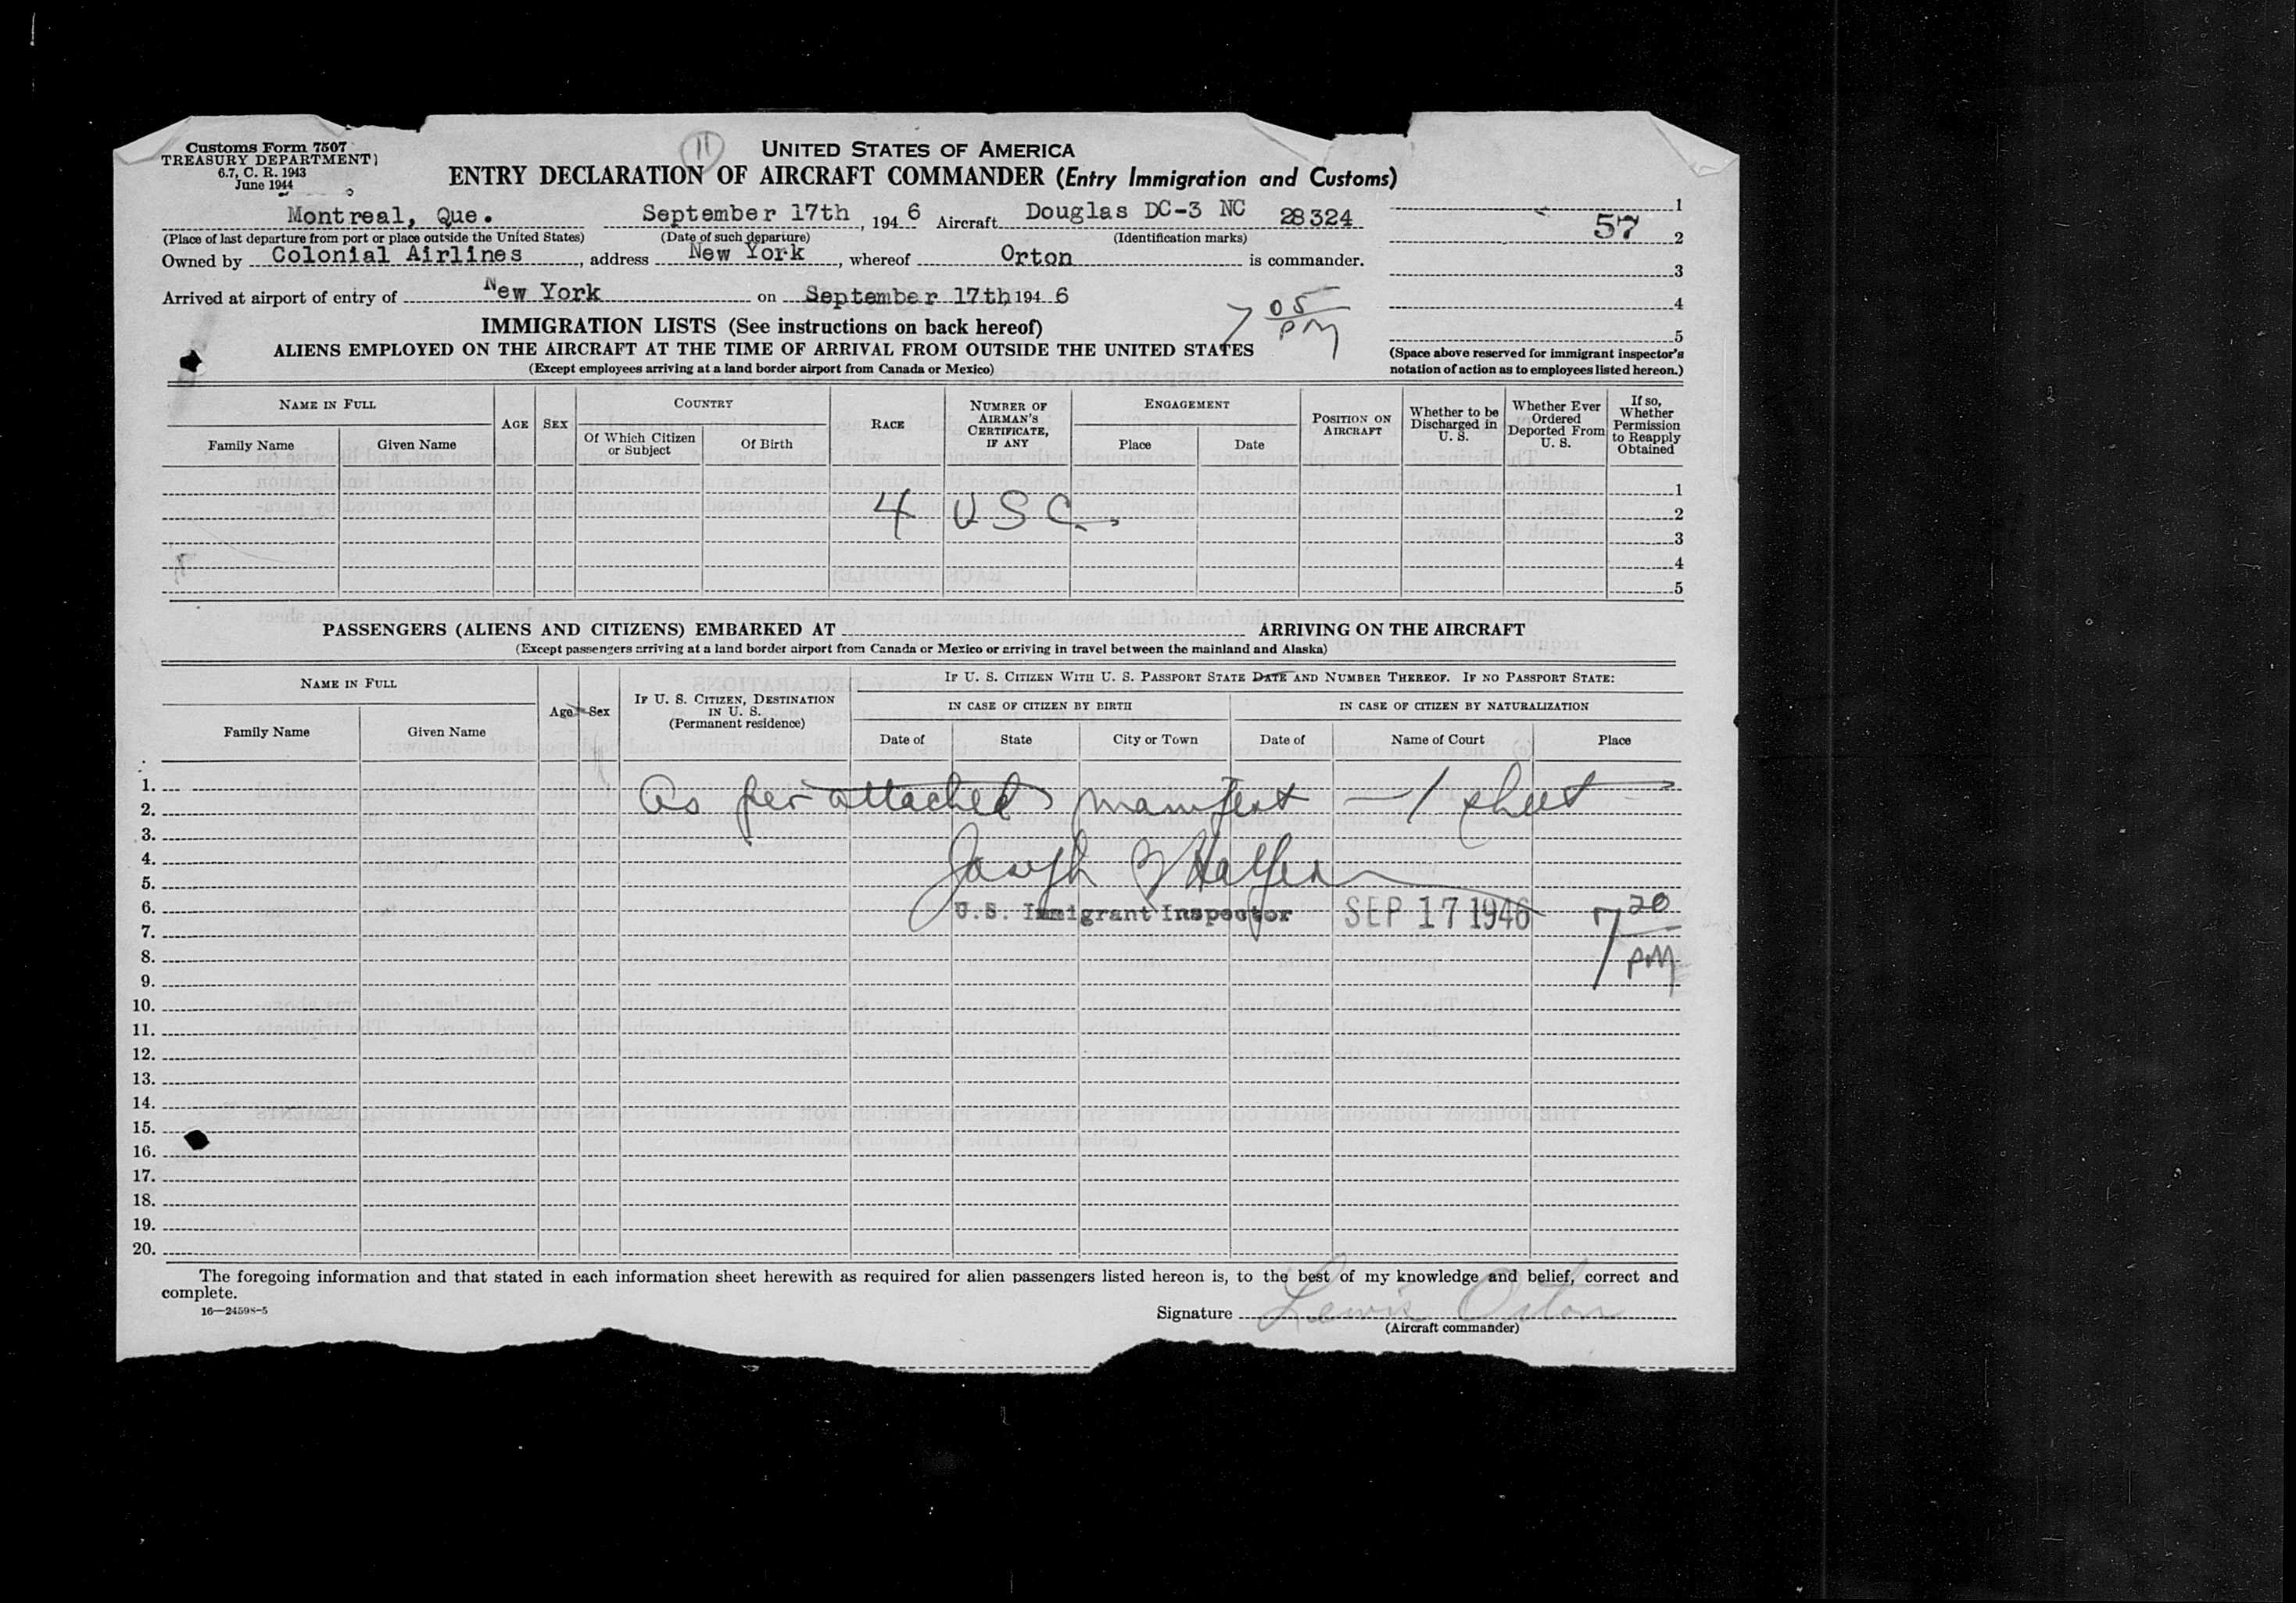 Customs Form 7507
TREASURY DEPARTMENT
6.7, C. R. 1943
June 1944
11
UNITED STATES OF AMERICA
ENTRY DECLARATION OF AIRCRAFT COMMANDER (Entry Immigration and Customs)
Montreal, Que. September 17th, 1946 Aircraft Douglas DC-3 NC 28324
(Place of last departure from port or place outside the United States) (Date of such departure) (Identification marks)
Owned by Colonial Airlines, address New York, whereof Orton is commander.
Arrived at airport of entry of New York on September 17th 1946
7 05 PM
1
57
2
3
4
5
(Space above reserved for immigrant inspector's
notation of action as to employees listed hereon.)
IMMIGRATION LISTS (See instructions on back hereof)
ALIENS EMPLOYED ON THE AIRCRAFT AT THE TIME OF ARRIVAL FROM OUTSIDE THE UNITED STATES
(Except employees arriving at a land border airport from Canada or Mexico)
NAME IN FULL
Family Name Given Name
AGE SEX
COUNTRY
Of Which Citizen or Subject Of Birth
RACE
NUMBER OF AIRMAN'S CERTIFICATE, IF ANY
ENGAGEMENT
Place Date
POSITION ON AIRCRAFT
Whether to be Discharged in U. S.
Whether Ever Ordered Deported From U. S.
If so, Whether Permission to Reapply Obtained
1
4 U S C
2
3
4
5
PASSENGERS (ALIENS AND CITIZENS) EMBARKED AT ARRIVING ON THE AIRCRAFT
(Except passengers arriving at a land border airport from Canada or Mexico or arriving in travel between the mainland and Alaska)
NAME IN FULL
Family Name Given Name
Age Sex
IF U. S. CITIZEN, DESTINATION IN U. S.
(Permanent residence)
IF U. S. CITIZEN WITH U. S. PASSPORT STATE DATE AND NUMBER THEREOF. IF NO PASSPORT STATE:
IN CASE OF CITIZEN BY BIRTH IN CASE OF CITIZEN BY NATURALIZATION
Date of State City or Town Date of Name of Court Place
1.
As per attached manifest — 1 sheet
2.
3.
4.
Joseph
5.
6.
U.S. Immigrant Inspector SEP 17 1946 7 20 PM
7.
8.
9.
10.
11.
12.
13.
14.
15.
16.
17.
18.
19.
20.
The foregoing information and that stated in each information sheet herewith as required for alien passengers listed hereon is, to the best of my knowledge and belief, correct and
complete.
16—24598-5
Signature Lewis Orton
(Aircraft commander)